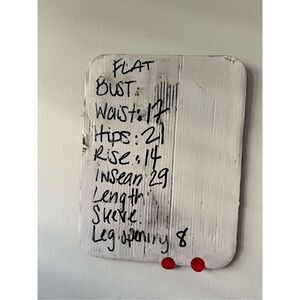 FLAT
BUST:
Waist: 17
Hips: 21
Rise: 14
Inseam 29
Length
Sleeve:
Leg opening 8